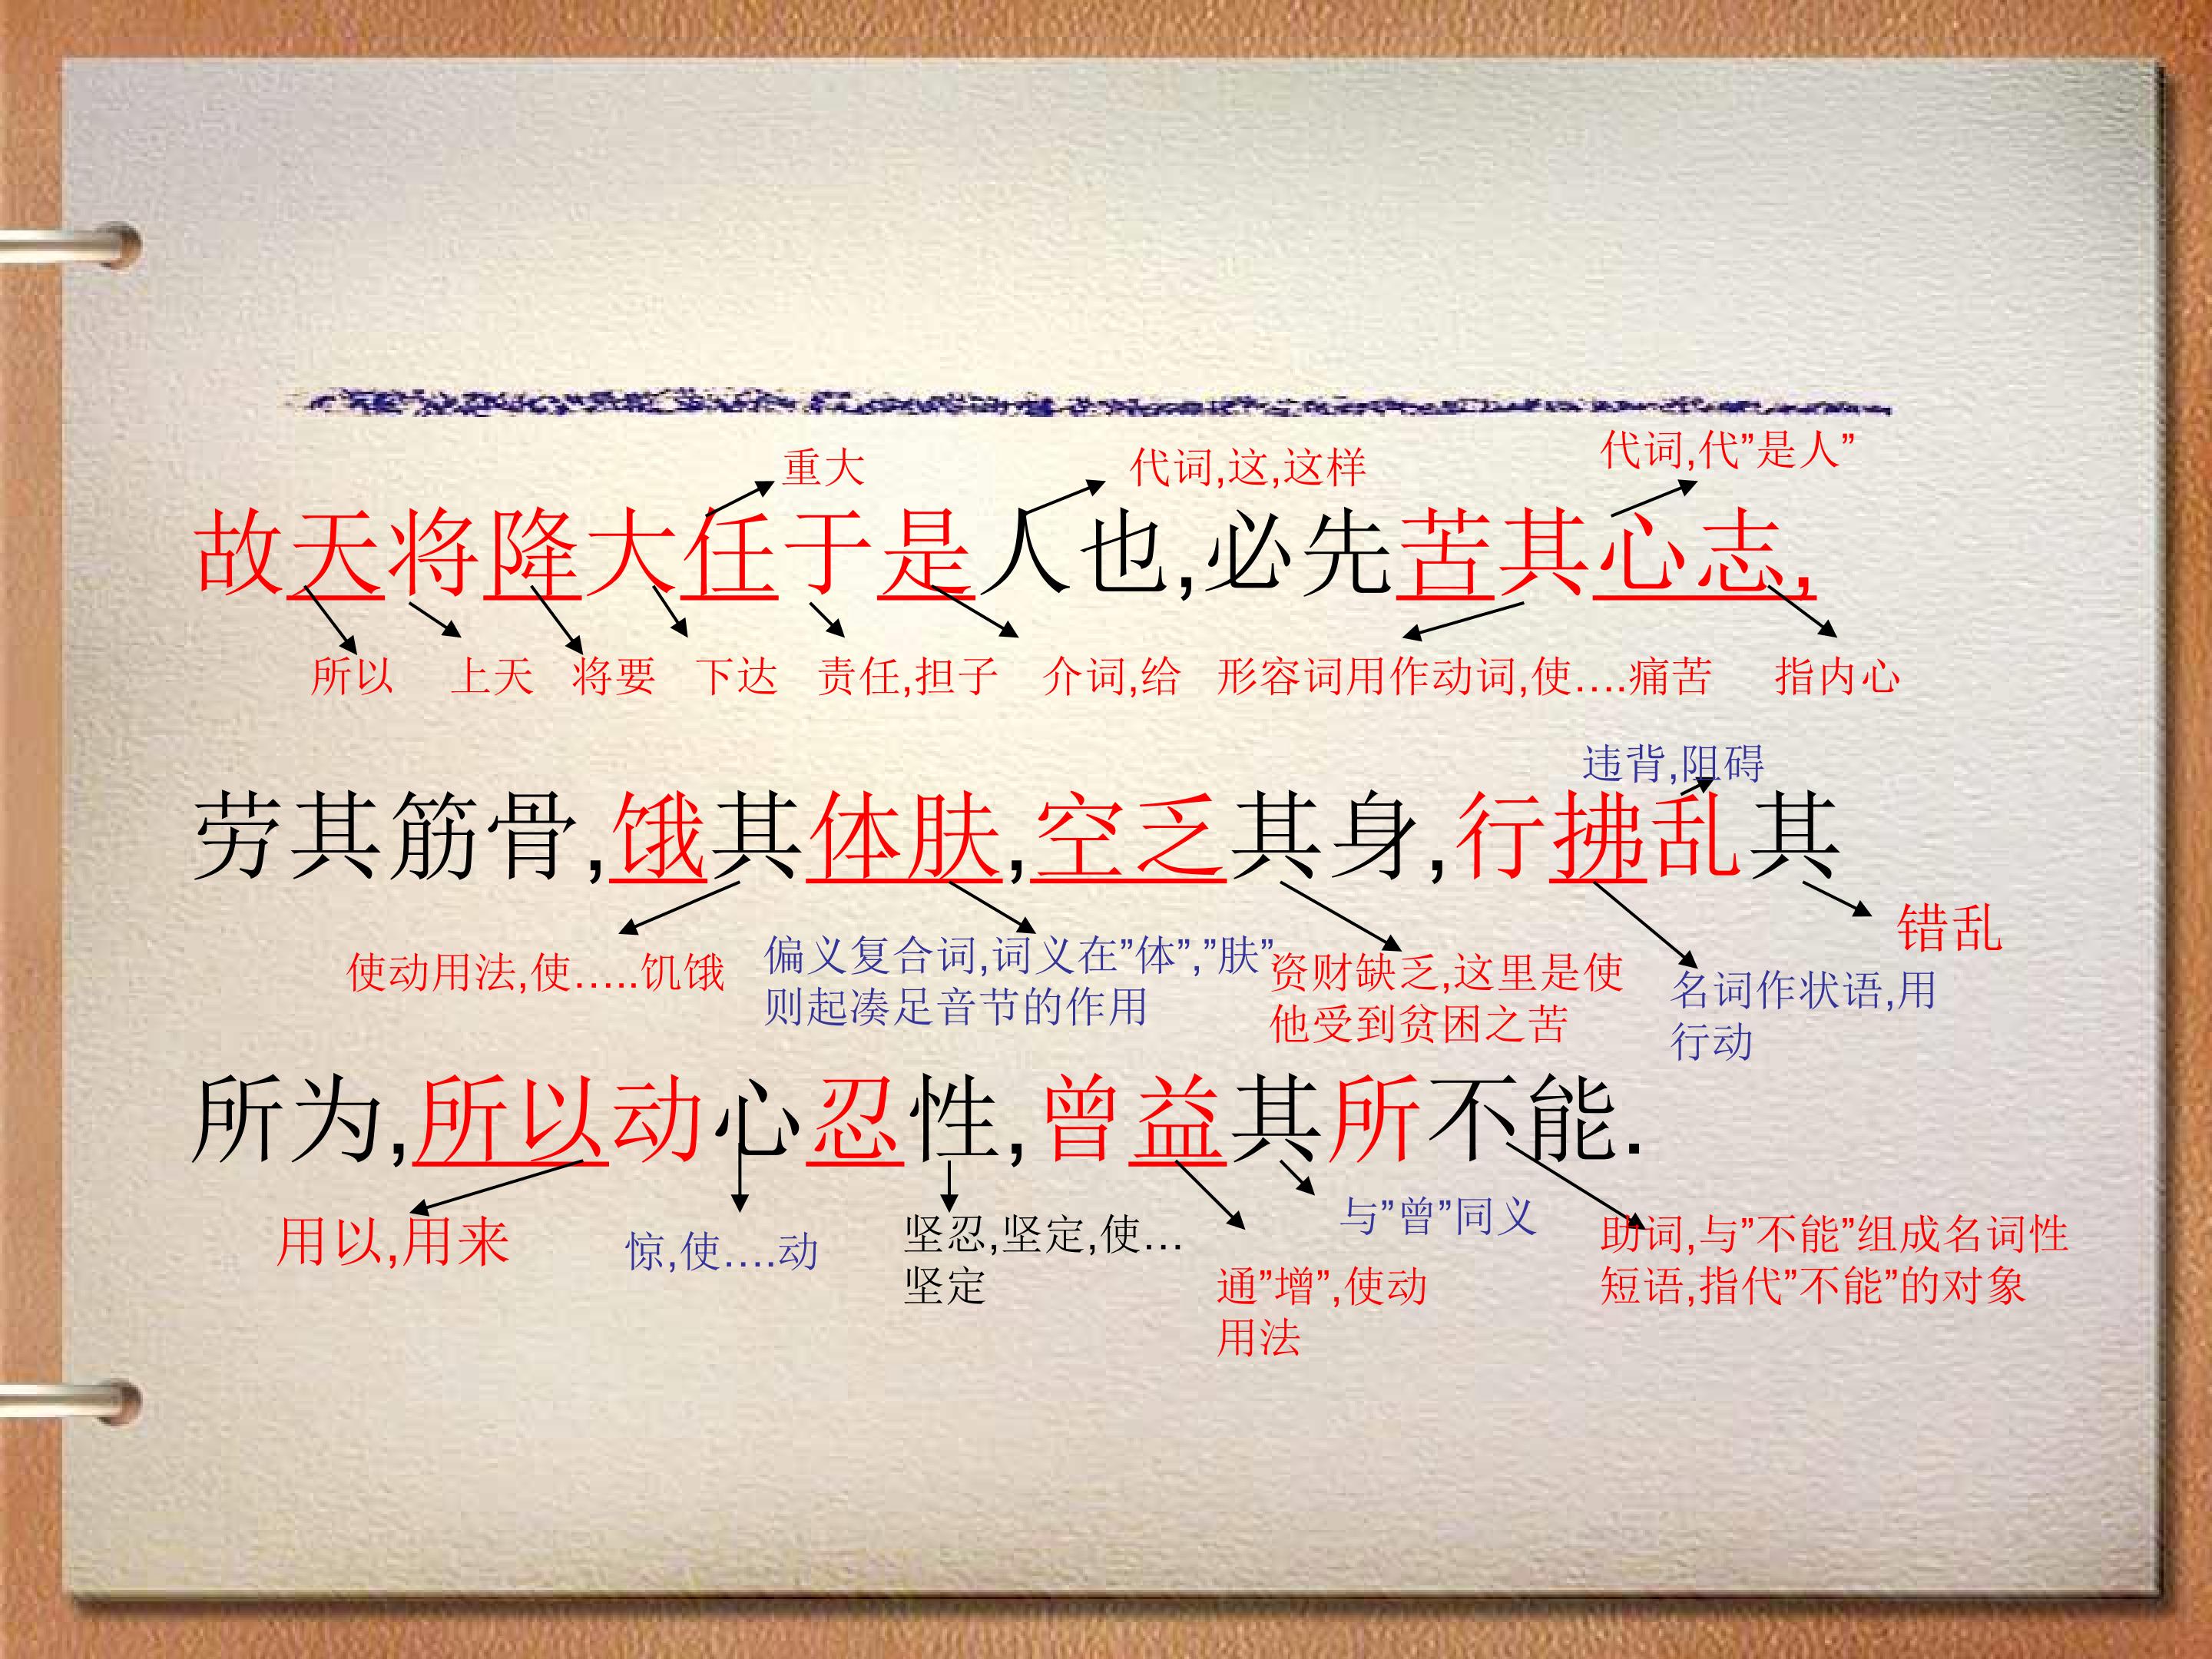 重大 代词,这,这样 代词,代”是人”
故天将降大任于是人也,必先苦其心志,
所以 上天 将要 下达 责任,担子 介词,给 形容词用作动词,使....痛苦 指内心
违背,阻碍
劳其筋骨,饿其体肤,空乏其身,行拂乱其
错乱
使动用法,使.....饥饿
偏义复合词,词义在”体”,”肤”
则起凑足音节的作用
资财缺乏,这里是使
他受到贫困之苦
名词作状语,用
行动
所为,所以动心忍性,曾益其所不能.
用以,用来
惊,使....动
坚忍,坚定,使...
坚定
通”增”,使动
用法
与”曾”同义
助词,与”不能”组成名词性
短语,指代”不能”的对象